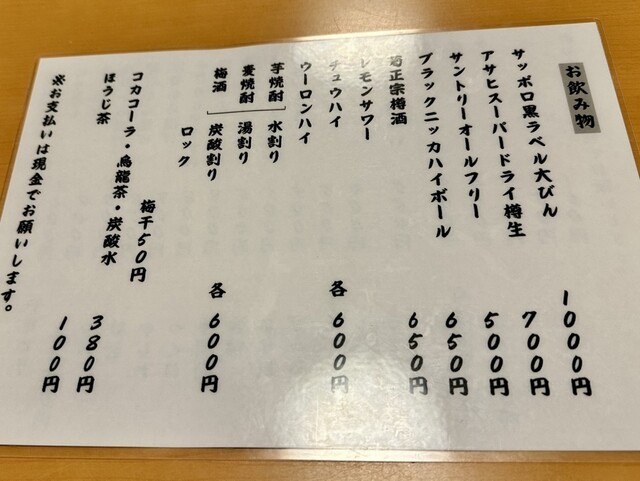 お飲み物
サッポロ黒ラベル大びん 1000円
アサヒスーパードライ樽生 700円
サントリーオールフリー 500円
ブラックニッカハイボール 650円
菊正宗樽酒 650円
レモンサワー
チュウハイ 各600円
ウーロンハイ
芋焼酎 水割り
麦焼酎 湯割り
梅酒 炭酸割り 各600円
ロック
梅干50円
コカコーラ・烏龍茶・炭酸水 380円
ほうじ茶 100円
※お支払いは現金でお願いします。